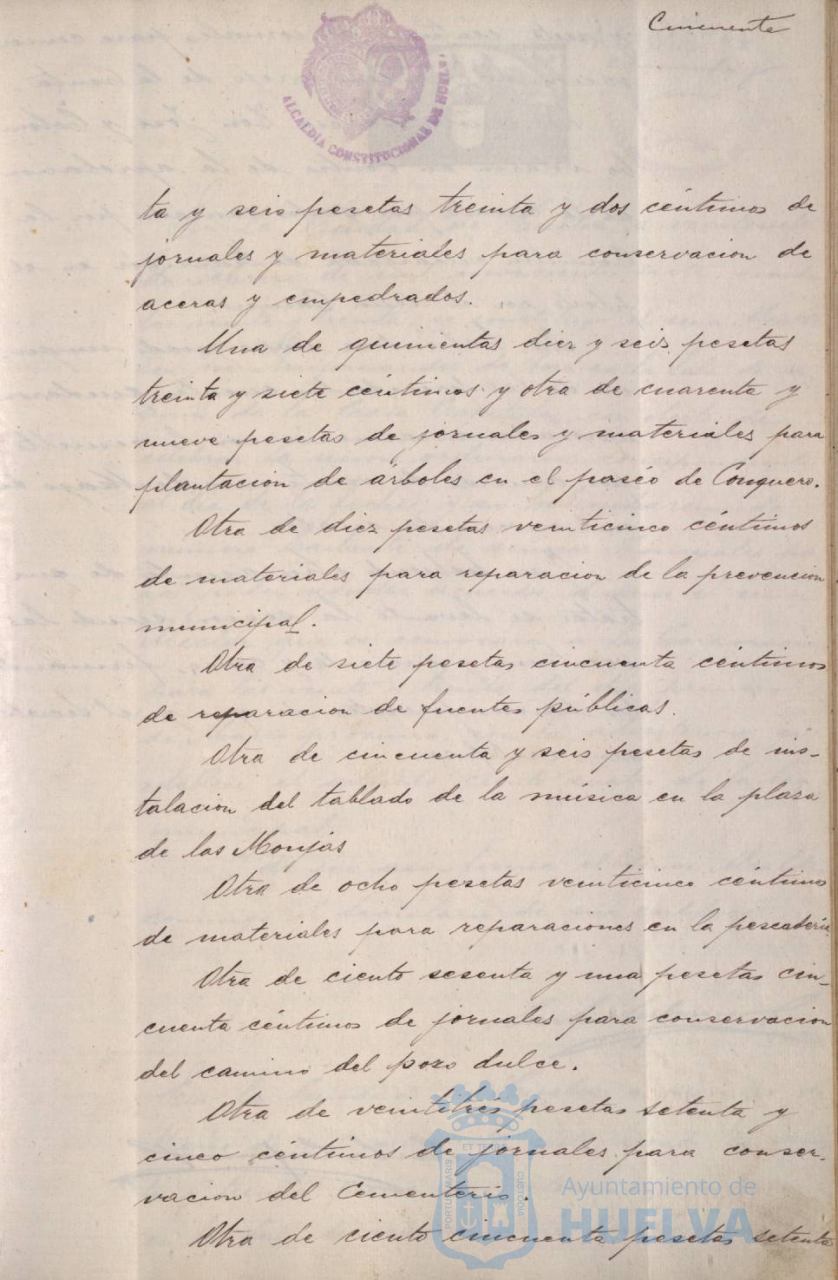 Cincuenta
ALCALDIA CONSTITUCIONAL DE HUELVA
ta y seis pesetas treinta y dos céntimos de
jornales y materiales para conservacion de
aceras y empedrados.
Una de quinientas diez y seis pesetas
treinta y siete céntimos y otra de cuarenta y
nueve pesetas de jornales y materiales para
plantacion de árboles en el paséo de Conquero.
Otra de diez pesetas veinticinco céntimos
de materiales para reparacion de la prevencion
municipal.
Otra de siete pesetas cincuenta céntimos
de reparacion de fuentes públicas.
Otra de cincuenta y seis pesetas de ins-
talacion del tablado de la música en la plaza
de las Monjas
Otra de ocho pesetas veinticinco céntimos
de materiales para reparaciones en la pescaderia
Otra de ciento sesenta y una pesetas cin-
cuenta céntimos de jornales para conservacion
del camino del pozo dulce.
Otra de veintitrés pesetas setenta y
cinco céntimos de jornales para conser-
vacion del Cementerio.
Otra de ciento cincuenta pesetas setenta
PORTUS MARIS ET TERRAE CUSTODIA
Ayuntamiento de
HUELVA